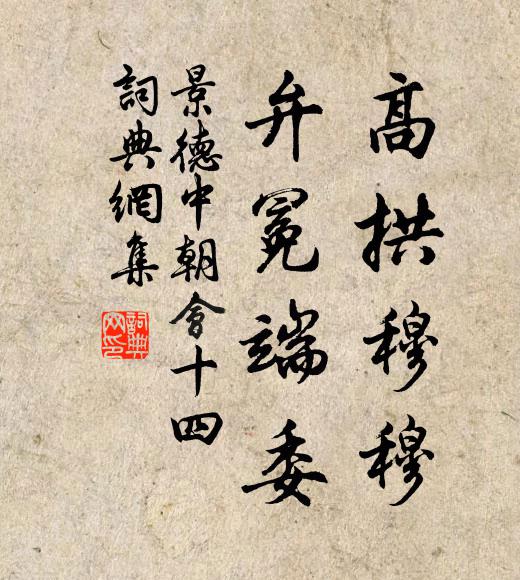 高拱穆穆
弁冕端委
景德中朝會十四
詞典網集
詞典網印